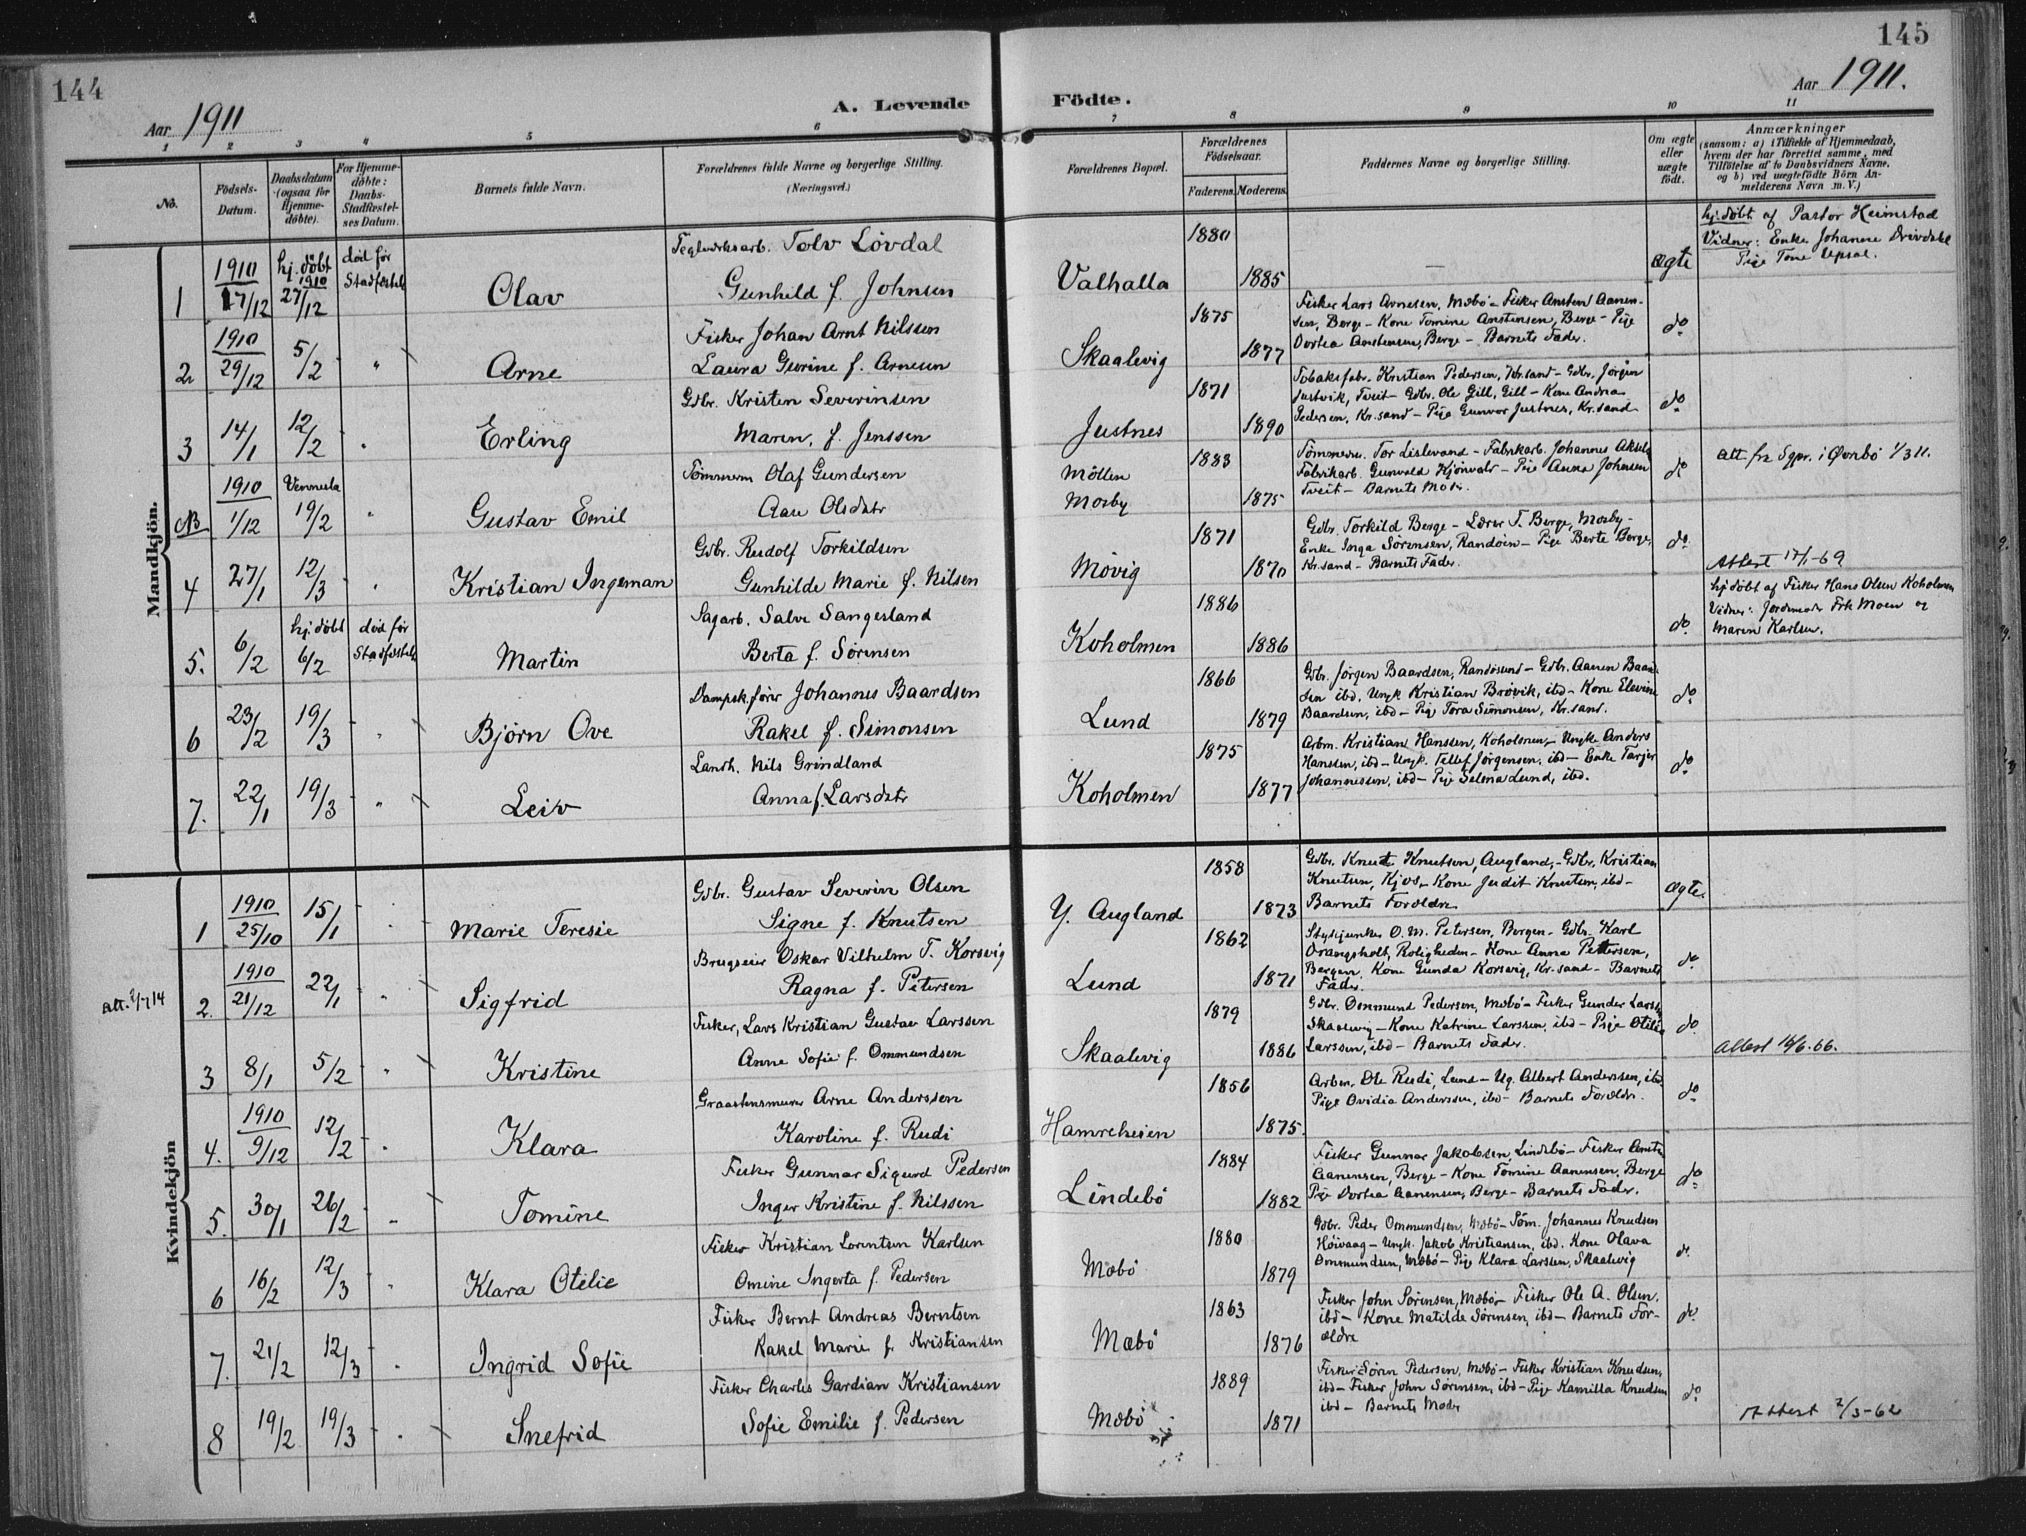 144
145
Aar 1911
A. Levende Födte.
Aar 1911.
1 2 3 4 5 6 7 8 9 10 11
No.
Födsels-Datum.
Daabsdatum (ogsaa for Hjemmedöbte).
For Hjemmedöbte: Daabs-Stadfæstelses Datum.
Barnets fulde Navn.
Forældrenes fulde Navne og borgerlige Stilling.
(Næringsvei.)
Forældrenes Bopæl.
Forældrenes Födselsaar.
Faderens. Moderens.
Faddernes Navne og borgerlige Stilling.
Om ægte eller uægte födt.
Anmærkninger
(saasom: a) i Tilfælde af Hjemmedaab, hvem der har forrettet samme, med Tilföielse af to Daabsvidners Navne, og b) ved uægtefödte Börn Anmelderens Navn m. V.)
Mandkjön.
1 1910 17/12 hj. döbt 1910 27/12 död før Stadfæstels Olav
Teglverksarb. Tolv Lövdal
Gunhild f. Johnsen
Valhalla 1880 1885 — ægte
hj. döbt af Pastor Heimstad
Vidner: Enke Johanne Drivdahl
Pige Tone Upsal.
2 1910 29/12 5/2 " Arne
Fisker Johan Arnt Nilssen
Laura Gurine f. Arnesen
Skaalevig 1875 1877
Fisker Lars Arnesen, Mæbö - Fisker Ansten Aanen-
sen, Berge - Kone Tomine Anstensen, Berge - Pige
Dortea Anstensen, Berge - Barnets Fader.
do
3 14/1 12/2 " Erling
Gdbr. Kristen Severinsen
Maren, f. Jenssen
Justnes 1871 1890
Tobaksfabr. Kristian Pedersen, Kr.sand - Gdbr. Jørgen
Justvik, Tveit - Gdbr. Ole Gill, Gill - Kone Andrea
Pedersen, Kr.sand - Pige Gunvor Justnes, Kr.sand
do
NB 1910 1/12 Vennesla 19/2 " Gustav Emil
Tömmerm Olaf Gundersen
Aase Olsdatr
Möllen
Mosby 1883 1875
Tömmerm. Tor Lislevand - Fabrikarb. Johannes Aksels
Fabrikarb. Gunvald Kjönvalr - Pige Anna Johnsen
Tveit - Barnets Moder.
do
Att. fra Spr. i Øvrebö 1/3 11.
4 27/1 12/3 " Kristian Ingeman
Gdbr. Rudolf Torkildsen
Gunhilde Marie f. Nilsen
Mövig 1871 1870
Gdbr. Torkild Berge - Lærer T. Berge, Mosby -
Enke Inga Sørensen, Randöen - Pige Berte Berge,
Kr.sand - Barnets Fader.
do
Attest 17/1-69
5. 6/2 hj. döbt 6/2 död før Stadfæstels Martin
Sagarb. Salve Sangesland
Berta f. Sörensen
Koholmen 1886 1886
do
hj. döbt af Fisker Hans Olsen Koholmen
Vidner: Jordemoder Frk Moen og
Maren Karlsen.
6 23/2 19/3 " Björn Ove
Dampsk.förer Johannes Baardsen
Rakel f. Simonsen
Lund 1866 1879
Gdbr. Jörgen Baardsen, Randösund - Gdbr. Aanen Baard-
sen ibd. Ungk Kristian Brövik, ibd - Kone Elevine
Baardsen, ibd - Pige Tora Simonsen, Kr.sand.
do
7. 22/1 19/3 " Leiv
Landh. Nils Grindland
Anna f. Larsdatr
Koholmen 1875 1877
Arbm. Kristian Hanssen, Koholmen, - Ungk Anders
Hanssen, ibd - Ungk. Tellef Jörgensen, ibd - Enke Tarjer
Johannessen, ibd - Pige Selma Lund, ibd.
do
Kvindekjön
1 1910 25/10 15/1 Marie Teresie
Gdbr. Gustav Severin Olsen
Signe f. Knutsen
Y. Augland 1858 1873
Gdbr. Knut Knutson, Augland, - Gdbr. Kristian
Knutsen, Kjos, - Kone Judit Knutsen, ibd -
Barnets Foreldre
ægte.
Att. 2/7 14
2. 1910 21/12 22/1 " Sigfrid
Brugseier Oskar Vilhelm T. Korsvig
Ragna f. Petersen
Lund 1862 1871
Stykjunker O. M. Petersen, Bergen - Gdbr. Karl
Orangsholt, Roligheden - Kone Anna Pettersen,
Bergen, Kone Gunda Korsvig, Kr.sand - Barnets
Fader.
do
3 8/1 5/2 " Kristine
Fisker, Lars Kristian Gustav Larssen
Anne Sofie f. Ommundsen
Skaalevig 1879 1886
Gdbr. Ommund Pedersen, Mæbö - Fisker Gunder Larss
Skaalevig - Kone Katrine Larssen, ibd - Pige Otilia
Larssen, ibd - Barnets Fader.
do
Attest 16/6. 66.
4. 1910 9/12 12/2 " Klara
Graastensmurer Arne Anderssen
Karoline f. Rudi
Hamreheien 1856 1875.
Arbm. Ole Rudi, Lund - Ug. Albert Anderssen, ibd
Pige Ovidia Anderssen, ibd - Barnets Foreldre.
do
5. 30/1 26/2 " Tomine
Fisker Gunnar Sigurd Pedersen
Inger Kristine f. Nilssen
Lindebö 1884 1882
Fisker Gunnar Jakobsen, Lindebö - Fisker Ansten
Aanensen, Berge - Kone Tomine Aanensen, Berge
Pige Dortea Aanensen, Berge - Barnets Fader.
do
6 16/2 12/3 " Klara Otelie
Fisker Kristian Lorentsen Karlsen
Omine Ingerta f. Pedersen
Mæbö 1880 1879
Gdbr. Peder Ommundsen, Mæbö - Söm. Johannes Knudsen
Höivaag - Ungk. Jakob Kristiansen, ibd. Kone Olava
Ommundsen, Mæbö - Pige Klara Larssen, Skaalevig
do
7. 21/2 12/3 " Ingrid Sofie
Fisker Bernt Andreas Berntsen
Rakel Marie f. Kristiansen
Mæbö 1863 1876
Fisker John Sörensen, Mæbö, Fisker Ole A. Olsen,
ibd - Kone Matilde Sörensen, ibd - Barnets For-
ældre
do
8 19/2 19/3 " Snefrid
Fisker Charles Gardian Kristiansen
Sofie Emilie f. Pedersen
Mæbö 1889 1871
Fisker Sören Pedersen, Mæbö - Fisker Kristian Knudsen,
ibd - Fisker John Sörensen, ibd - Pige Kamilla Knudsen
ibd - Barnets Moder
do
Attest 2/3-62